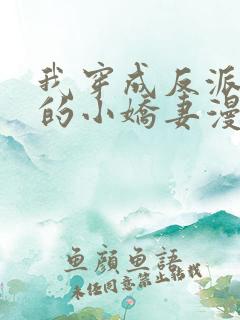 我穿成反派
的小嬌妻漫
魚顧魚語
未经同意禁止转载